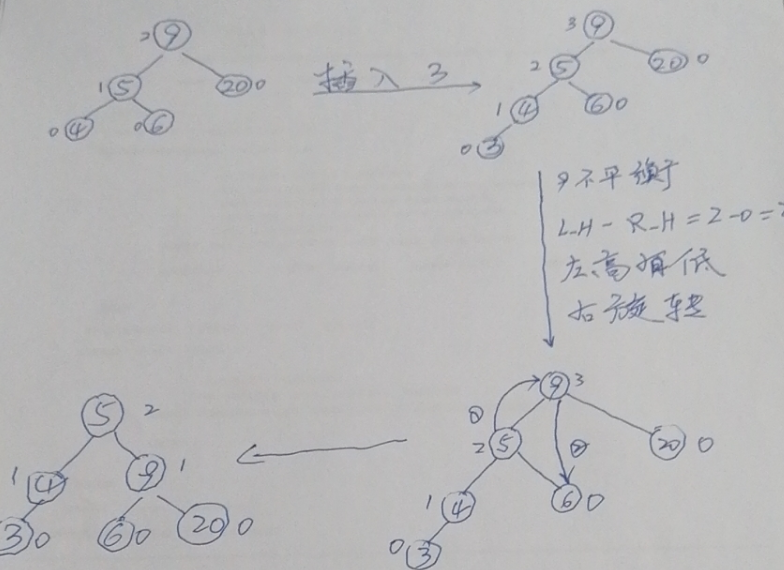 2 9
1 5 20 0
0 4 0 6
插入 3
3 9
2 5 20 0
1 4 6 0
0 3
9不平衡
L-H - R-H = 2-0=
左高右低
右旋转
9 3
2 5 20 0
1 4 6 0
0 3
5 2
1 4 9 1
3 0 6 0 20 0